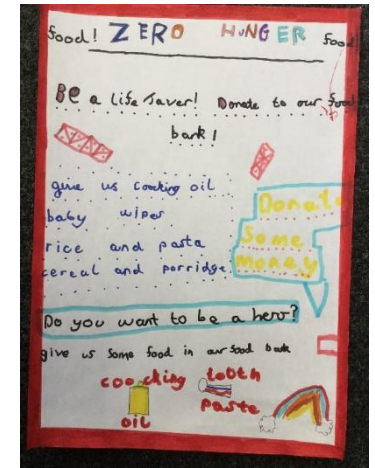 food! ZERO HUNGER food
Be a life saver! Donate to our food
bank!
give us coocking oil
baby wipes
rice and pasta
cereal and porridge.
Donate
Some
money
Do you want to be a hero?
give us some food in our food bank
coocking tooth
oil paste